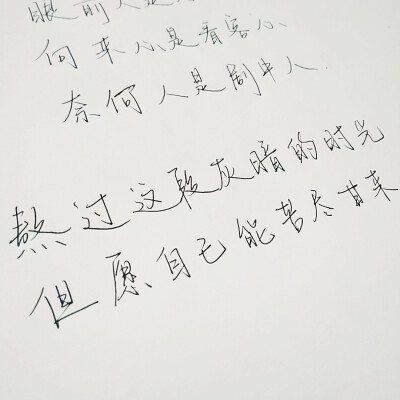 眼前人是
向来心是看客心
奈何人是剧中人
熬过这段灰暗的时光
但愿自己能苦尽甘来